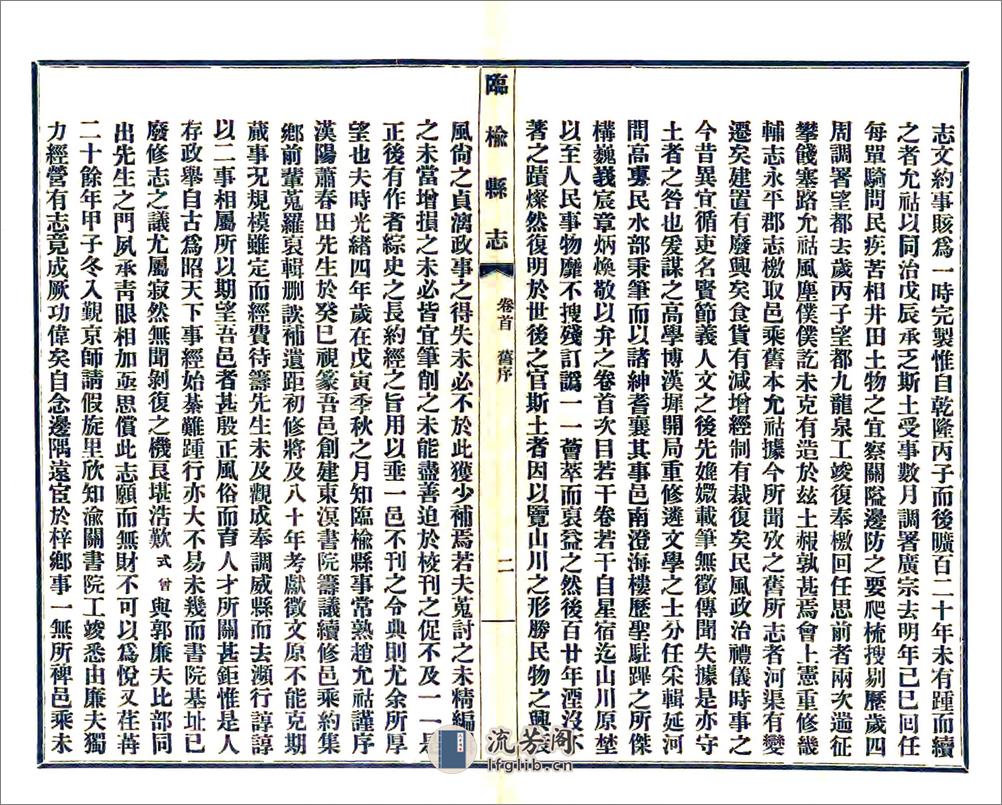 志文約事賅為一時完製惟自乾隆丙子而後曠百二十年未有踵而續
之者允祜以同治戊辰承乏斯土受事數月調署廣宗去明年己巳回任
每單騎問民疾苦相井田土物之宜察關隘邊防之要爬梳搜剔歷歲四
周調署望都去歲丙子望都九龍泉工竣復奉檄回任思前者兩次遄征
攀餞塞路允祜風塵僕僕訖未克有造於茲土赧孰甚焉會上憲重修畿
輔志永平郡志檄取邑乘舊本允祜據今所聞攷之舊所志者河渠有變
遷矣建置有廢興矣食貨有減增經制有裁復矣民風政治禮儀時事之
今昔異宜循吏名賢節義人文之後先媲媺載筆無徵傳聞失據是亦守
土者之咎也爰謀之高學博漢墀開局重修遴文學之士分任采輯延河
間高專民水部秉筆而以諸紳耆襄其事邑南澄海樓歷聖駐蹕之所傑
構巍羲宸章炳煥敬以弁之卷首次目若干卷若干自星宿迄山川原埜
以至人民事物靡不搜殘訂譌一一薈萃而裒益之然後百廿年湮沒不
著之蹟燦然復明於世後之官斯土者因以覽山川之形勝民物之興衰
臨榆縣志
卷首 舊序
二
風尚之貞漓政事之得失未必不於此獲少補焉若夫蒐討之未精編
之未當增損之未必皆宜筆削之未能盡善迫於校刊之促不及一一是
正後有作者綜史之長約經之旨用以垂一邑不刊之令典則尤余所厚
望也夫時光緒四年歲在戊寅季秋之月知臨榆縣事常熟趙允祜謹序
漢陽蕭春田先生於癸巳視篆吾邑創建東溟書院籌議續修邑乘約集
鄉前輩蒐羅裒輯刪訤補遺距初修將及八十年考獻徵文原不能克期
蕆事況規模雖定而經費待籌先生未及觀成奉調威縣而去瀕行諄諄
以二事相屬所以期望吾邑者甚殷正風俗而育人才所關甚鉅惟是人
存政舉自古為昭天下事經始綦難踵行亦大不易未幾而書院基址已
廢修志之議尤屬寂然無聞剝復之機良堪浩歎式曾與郭廉夫比部同
出先生之門夙承青眼相加亟思償此志願而無財不可以為悅又荏苒
二十餘年甲子冬入覲京師請假旋里欣知渝關書院工竣悉由廉夫獨
力經營有志竟成厥功偉矣自念邊隅遠宦於梓鄉事一無所裨邑乘未
流芳阁
lfglib.cn